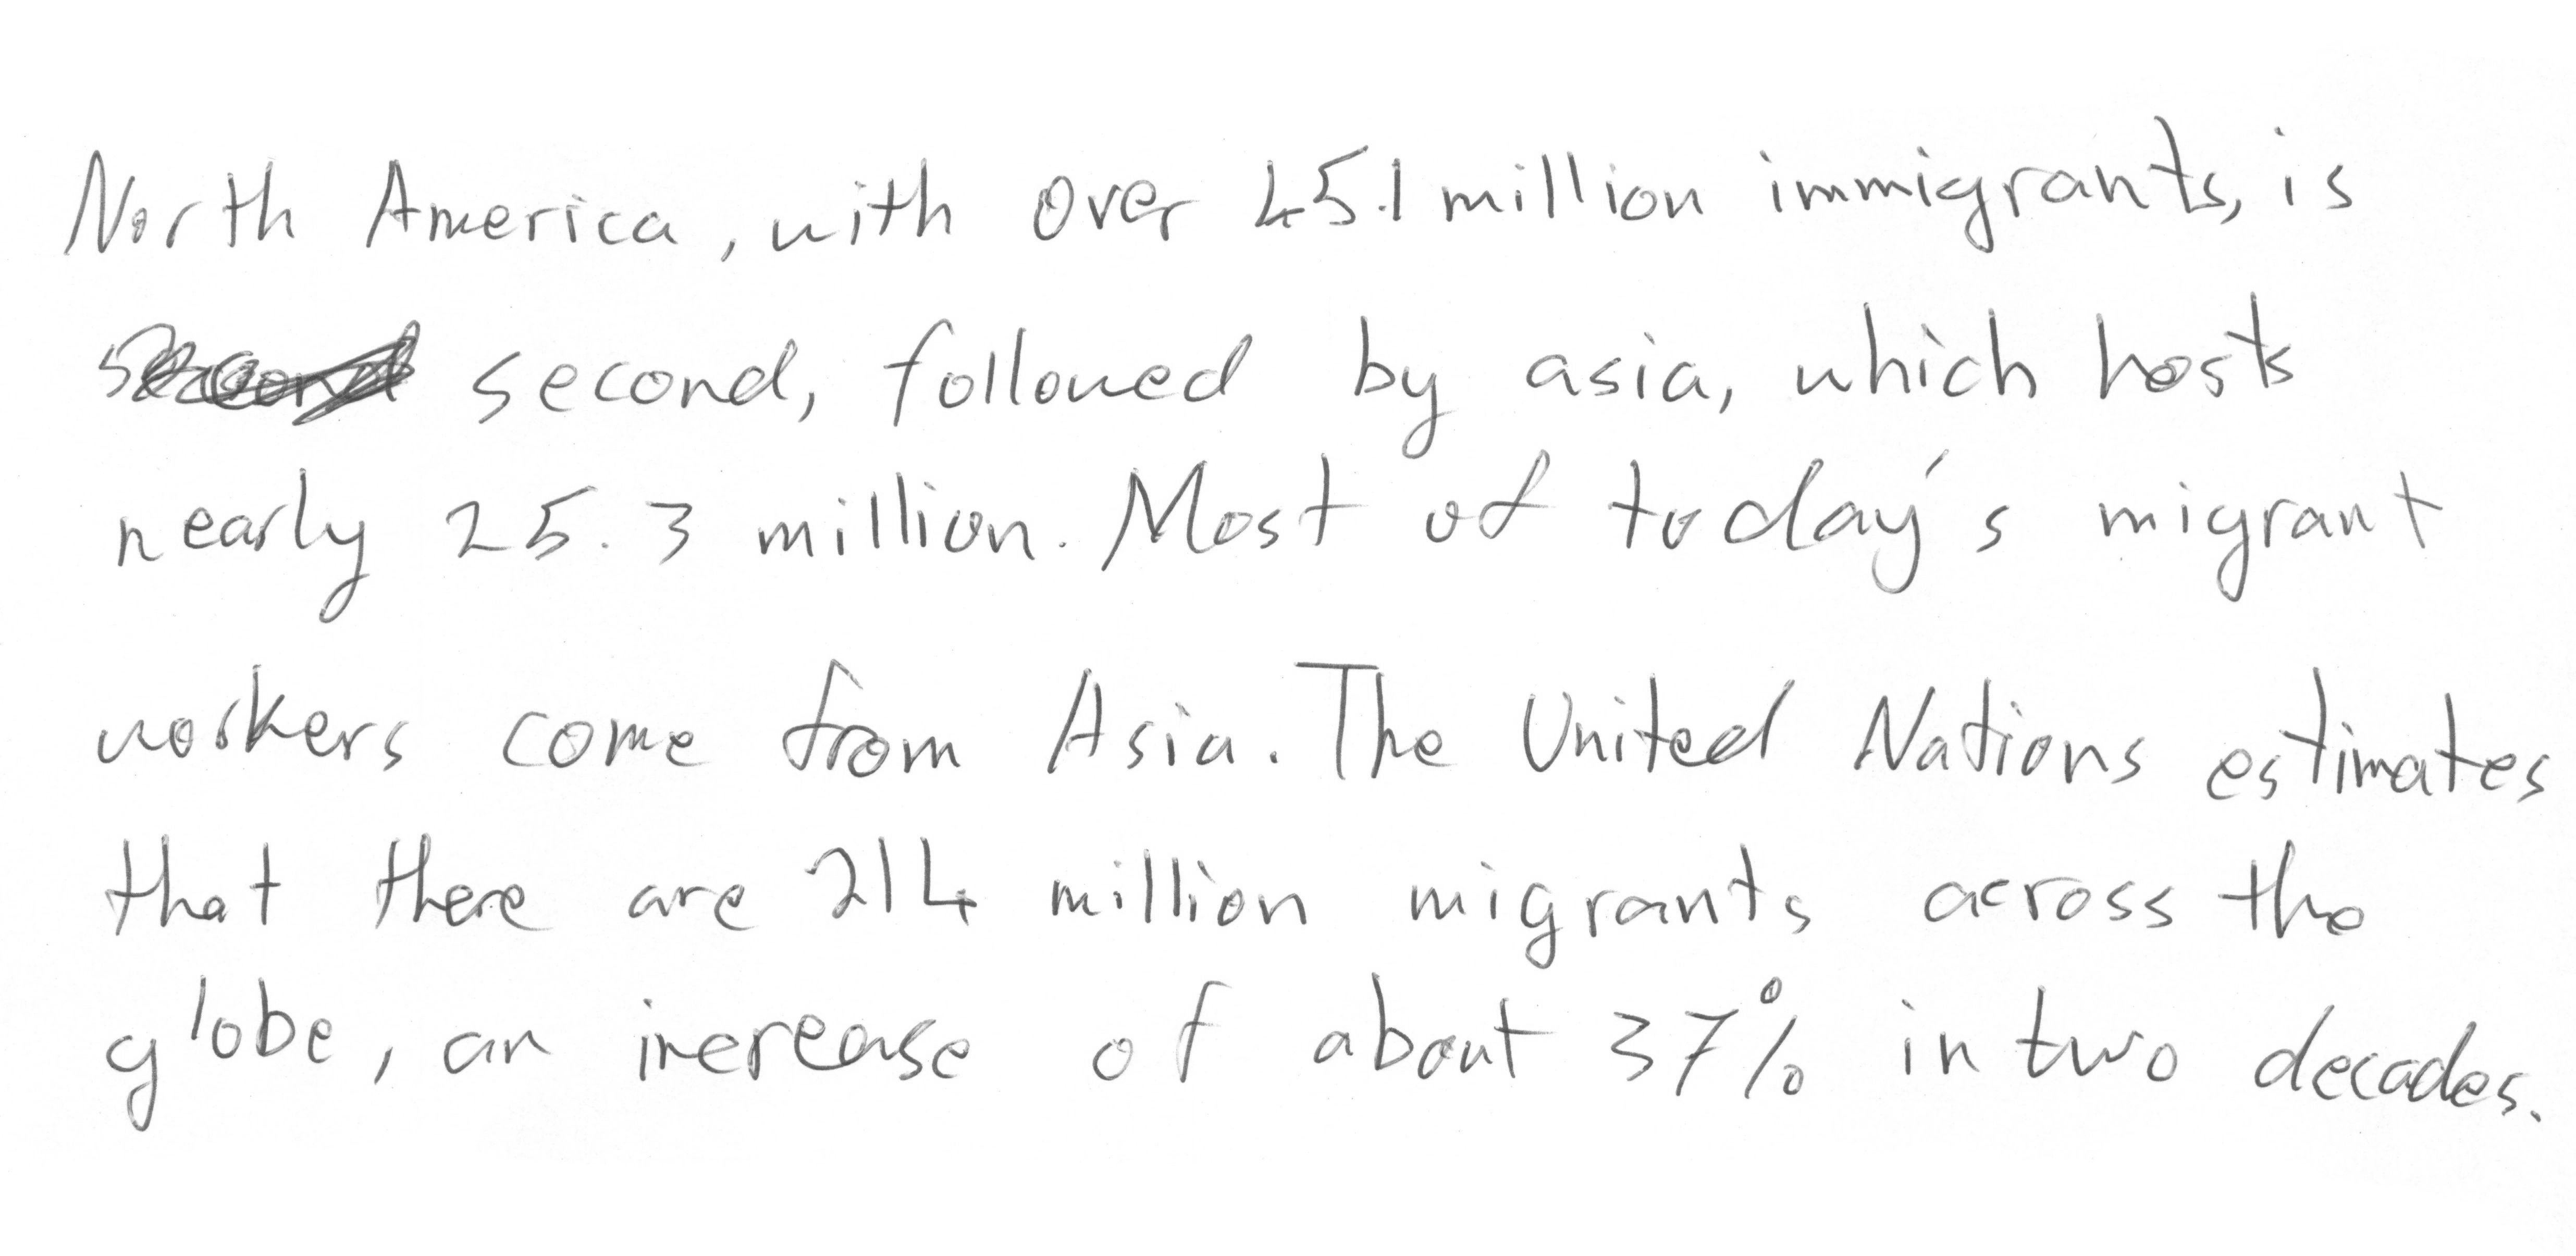 North America, with over 45.1 million immigrants, is
second, followed by asia, which hosts
nearly 25.3 million. Most of today's migrant
workers come from Asia. The United Nations estimates
that there are 214 million migrants across the
globe, an increase of about 37% in two decades.